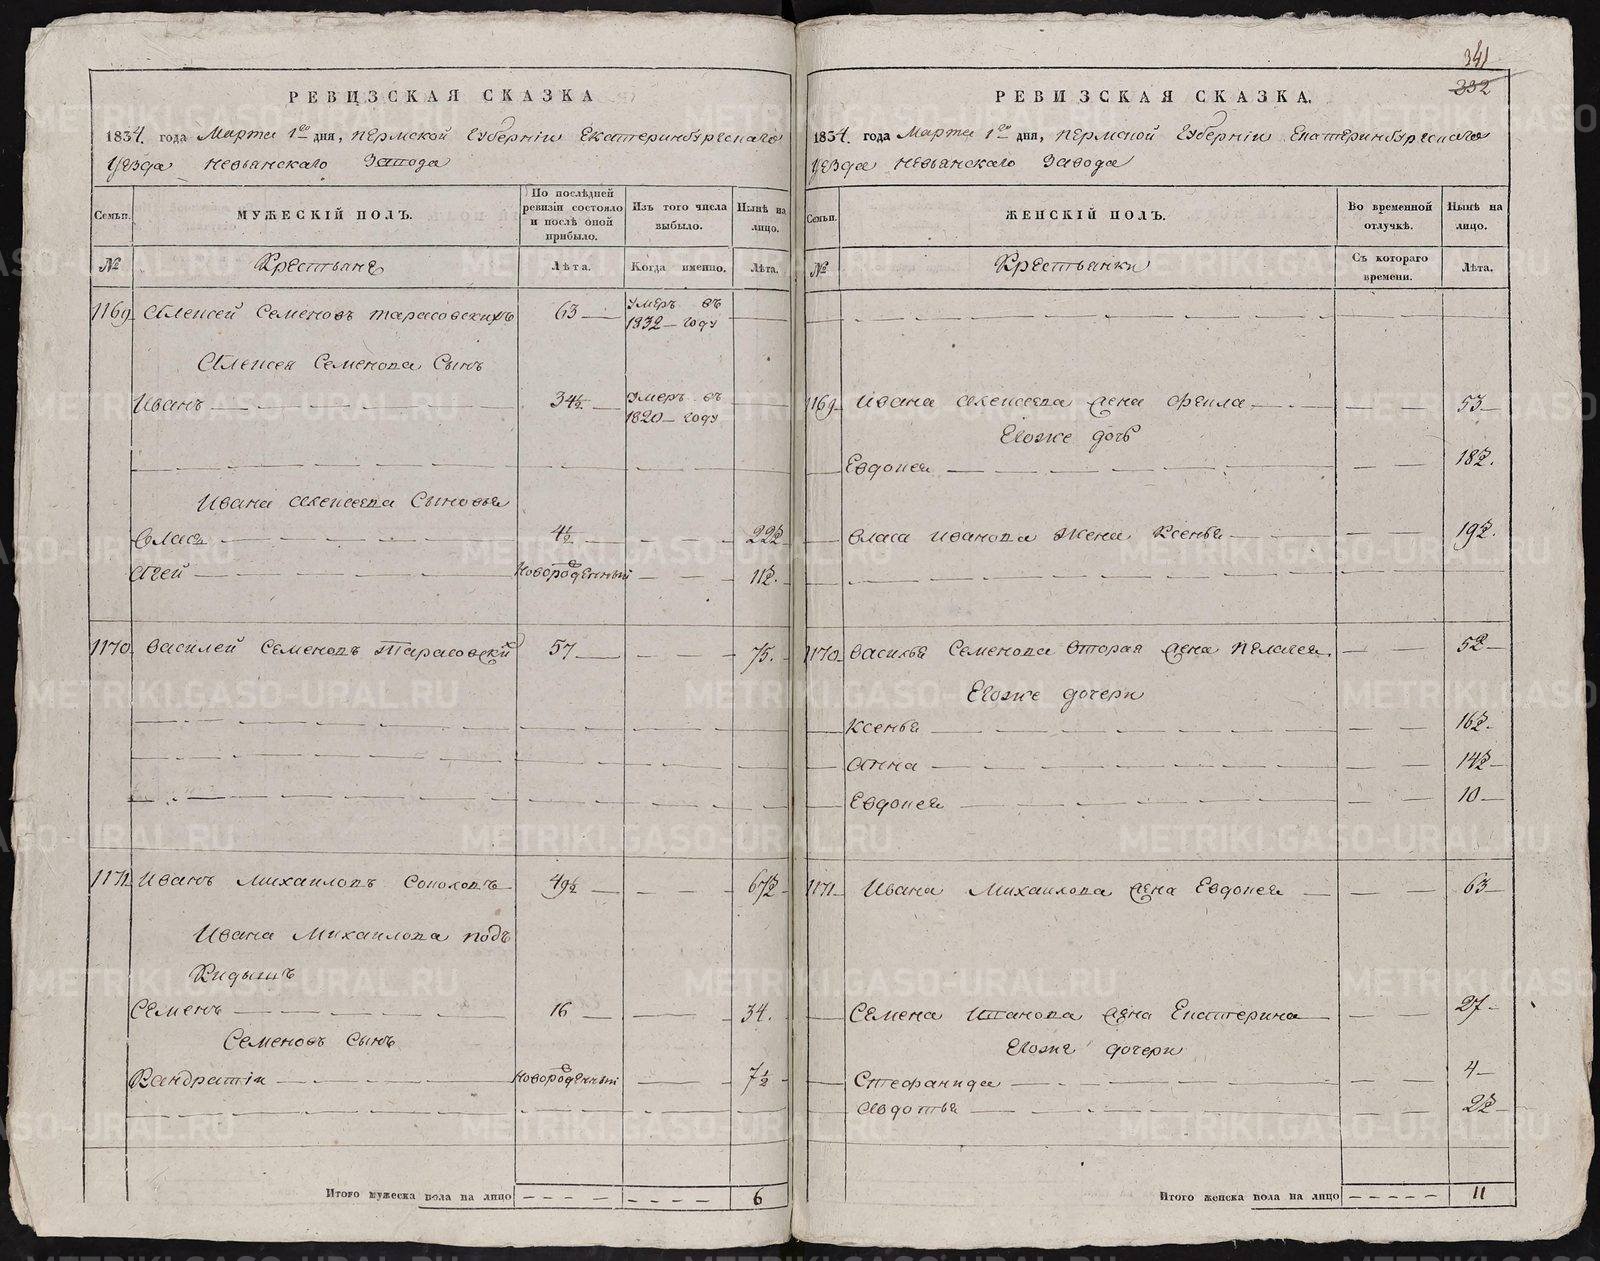 РЕВИЗСКАЯ СКАЗКА
1834. года Марта 1го дня, Пермской Губернiи Екатеринбургскаго
Уезда Невьянскаго Завода
Семьи. МУЖЕСКIЙ ПОЛЪ. По послѣдней ревизiи состояло и послѣ оной прибыло. Изъ того числа выбыло. Нынѣ на лицо.
№ Крестьяне Лѣта. Когда именно. Лѣта.
1169 Алексей Семеновъ Тарасовскихъ 63 Умеръ въ 1832 году
Алексея Семенова Сынъ
Иванъ 34½ Умеръ въ 1820 году
Ивана Алексеева Сыновья
Власъ 4½ 22½
Агей Новорожденный 11½
1170 Василей Семеновъ Тарасовский 57 75.
1171 Иванъ Михаиловъ Соколовъ 49½ 67½
Ивана Михаилова под
Кидышъ
Семенъ 16 34.
Семеновъ Сынъ
Кандратiи Новорожденный 7½
Итого мужеска пола на лицо 6
341
332
РЕВИЗСКАЯ СКАЗКА.
1834. года Марта 1го дня, Пермской Губернiи Екатеринбургскаго
Уезда Невьянскаго Завода
Семьи. ЖЕНСКIЙ ПОЛЪ. Во временной отлучкѣ. Нынѣ на лицо.
№ Крестьянки Съ котораго времени. Лѣта.
1169 Ивана Алексеева жена Фекла 53
Егоже дочь
Евдокея 18½.
Власа Иванова Жена Ксенья 19½.
1170 Василья Семенова вторая жена Пелагея 52
Егоже дочери
Ксенья 16½
Анна 14½
Евдокея 10
1171 Ивана Михаилова жена Евдокея 63
Семена Иванова жена Екатерина 27
Егоже дочери
Стефанида 4
Авдотья 2½
Итого женска пола на лицо 11
METRIKI.GASO-URAL.RU